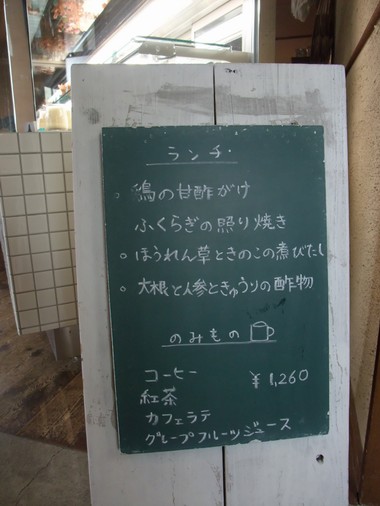 ランチ・
○ 鶏の甘酢がけ
ふくらぎの照り焼き
○ ほうれん草ときのこの煮びたし
○ 大根と人参ときゅうりの酢物
のみもの
コーヒー ¥1,260
紅茶
カフェラテ
グレープフルーツジュース